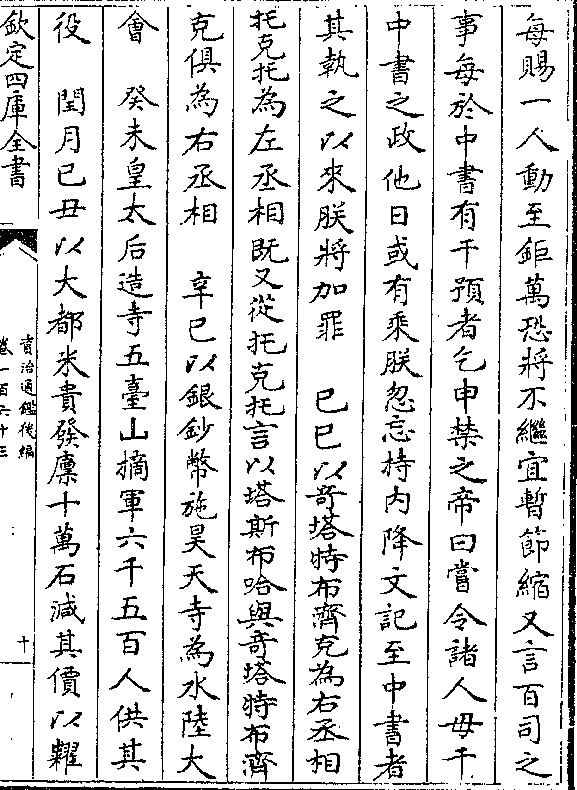 每賜一人動至鉅萬恐將不繼宜暫節縮又言百司之
事每於中書有干預者乞申禁之帝曰嘗令諸人毋干
中書之政他日或有乘朕忽忘持内降文記至中書者
其執之以來朕將加罪　己巳以竒塔特布濟克為右丞相
托克托為左丞相既又從托克托言以塔斯布哈與竒塔特布濟
克俱為右丞相　辛巳以銀鈔幣施昊天寺為水陸大
會　癸未皇太后造寺五臺山摘軍六千五百人供其
役　閏月己丑以大都米貴發廩十萬石減其價以糶
欽定四庫全書
資治通鑑後編
卷一百六十三
十